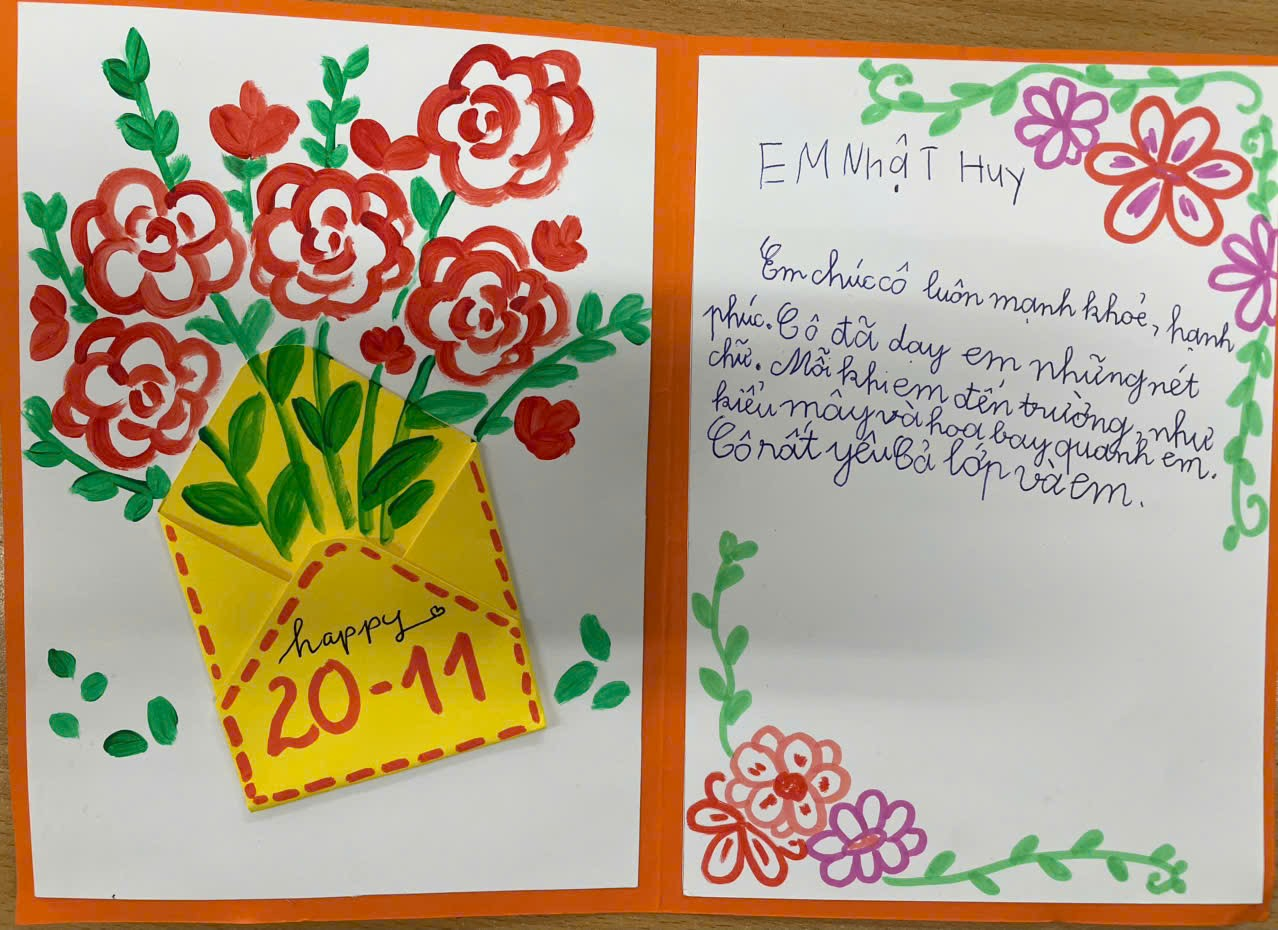 happy
20-11
EM NHậT HUY
Em chúc cô luôn mạnh khỏe, hạnh
phúc. Cô đã dạy em những nét
chữ. Mỗi khi em đến trường, như
kiểu mây và hoa bay quanh em.
Cô rất yêu cả lớp và em.